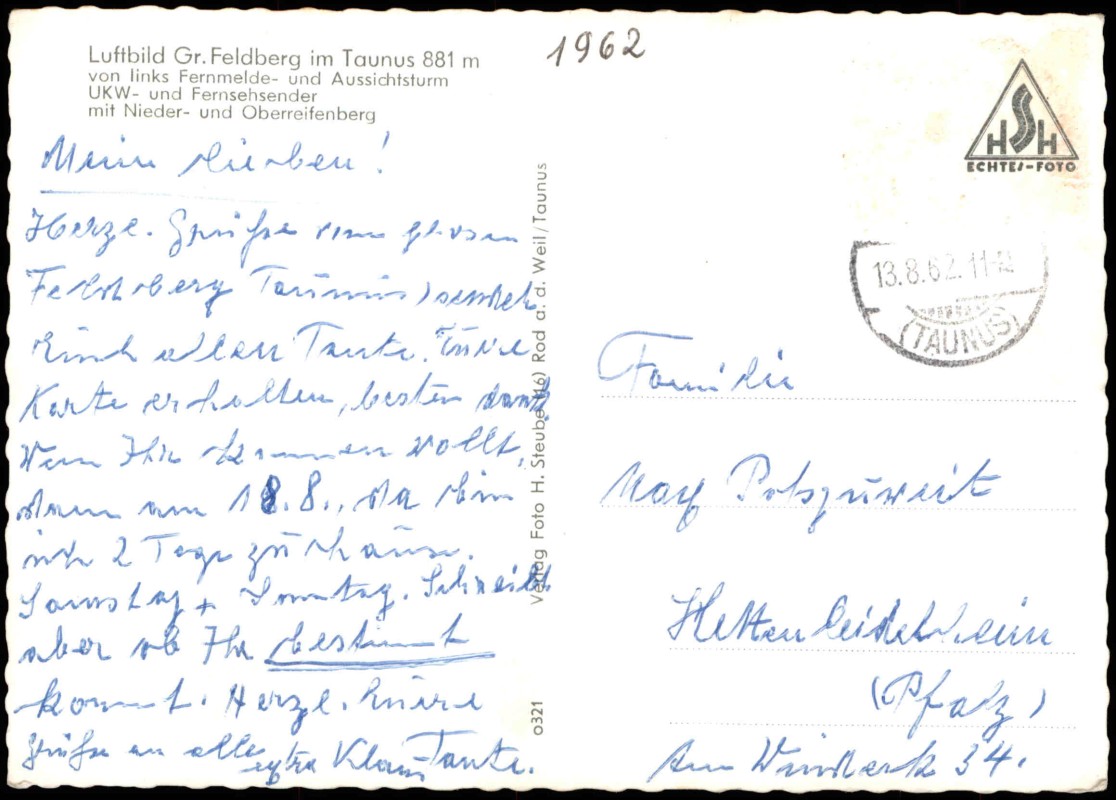 Luftbild Gr. Feldberg im Taunus 881 m
von links Fernmelde- und Aussichtsturm
UKW- und Fernsehsender
mit Nieder- und Oberreifenberg
1962
HSH
ECHTES-FOTO
13.8.62.11-12
(TAUNUS)
Verlag Foto H. Steube (16) Rod a. d. Weil/Taunus
o321
Meine Lieben!
Herzl. Grüße vom grosen
Feldberg Taunus, sendet
Euch allen Tante. Eure
Karte erhalten, besten dank
Wen Ihr kommen wollt,
dann am 18.8., da bin
ich 2 Tage zu hause.
Samstag + Sonntag. Schreibt
aber ob Ihr bestimmt
kommt. Herzl. Eure
Grüße an alle
extra Klaus Tante.
Familie
Max
Hettenleidelheim
(Pfalz)
Am Winderk 34.